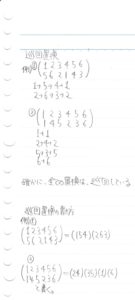 巡回置換
例① (1 2 3 4 5 6
5 6 2 1 4 3)
1→5→4→1
2→6→3→2
② (1 2 3 4 5 6
1 4 5 2 3 6)
1→1
2→4→2
3→5→3
6→6
確かに、全ての置換は、巡回している
巡回置換の書き方
例①
(1 2 3 4 5 6
5 6 2 1 4 3) = (154)(263)
②
(1 2 3 4 5 6
1 4 5 2 3 6) = (24)(35)(1)(6)
と書く。